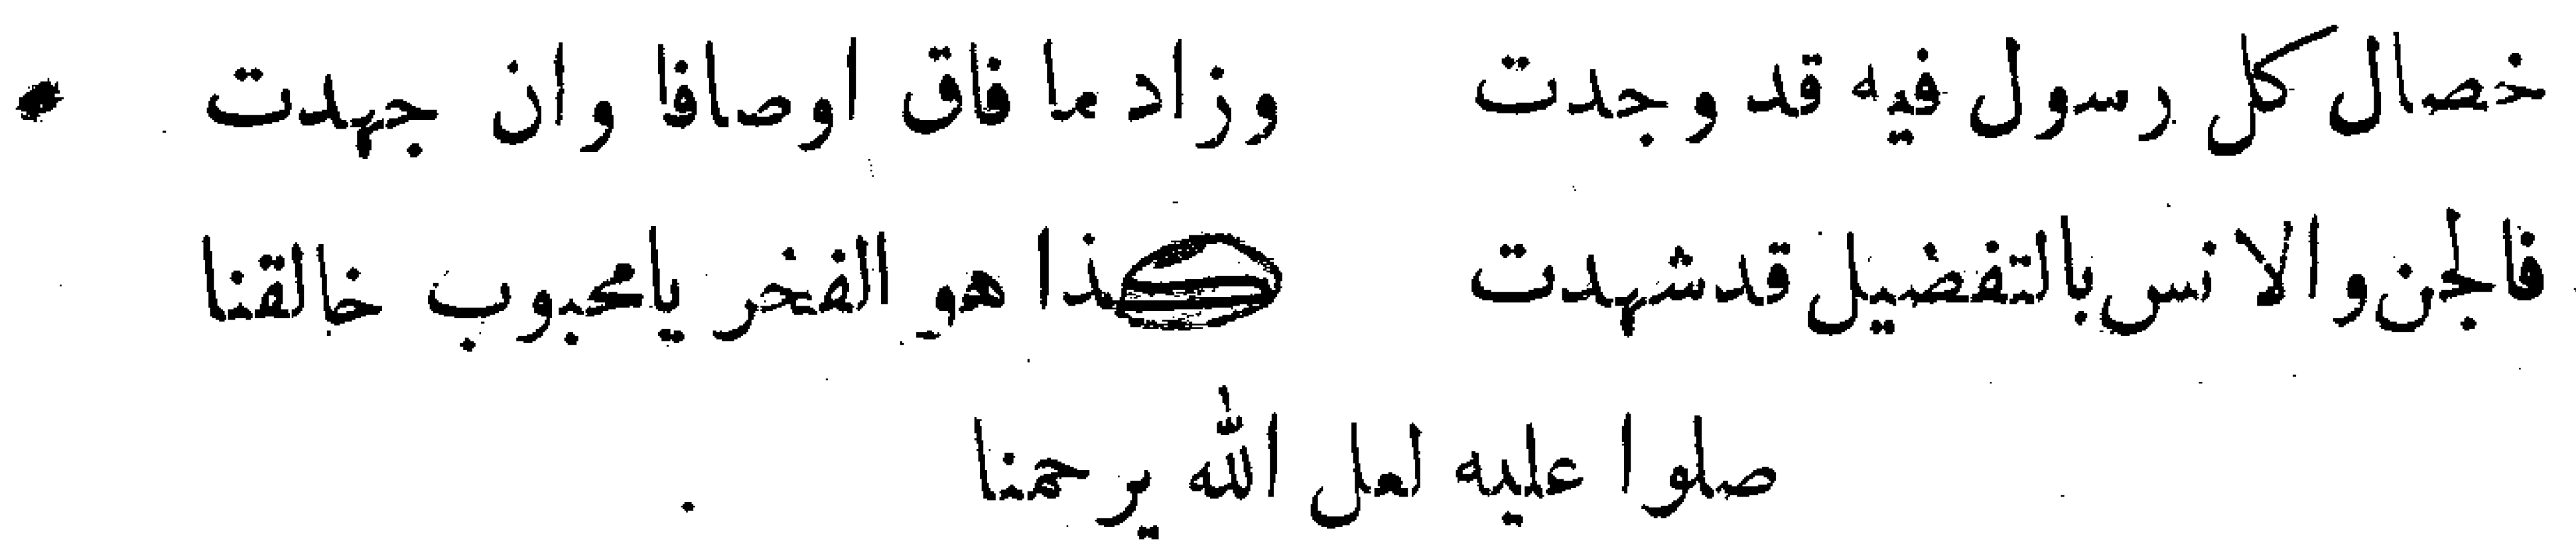 خصال كل رسول فيه قد وجدت وزاد ما فاق اوصافا وان جهدت
فالجن والانس بالتفضيل قد شهدت كذا هو الفخر يا محبوب خالقنا
صلوا عليه لعل الله يرحمنا